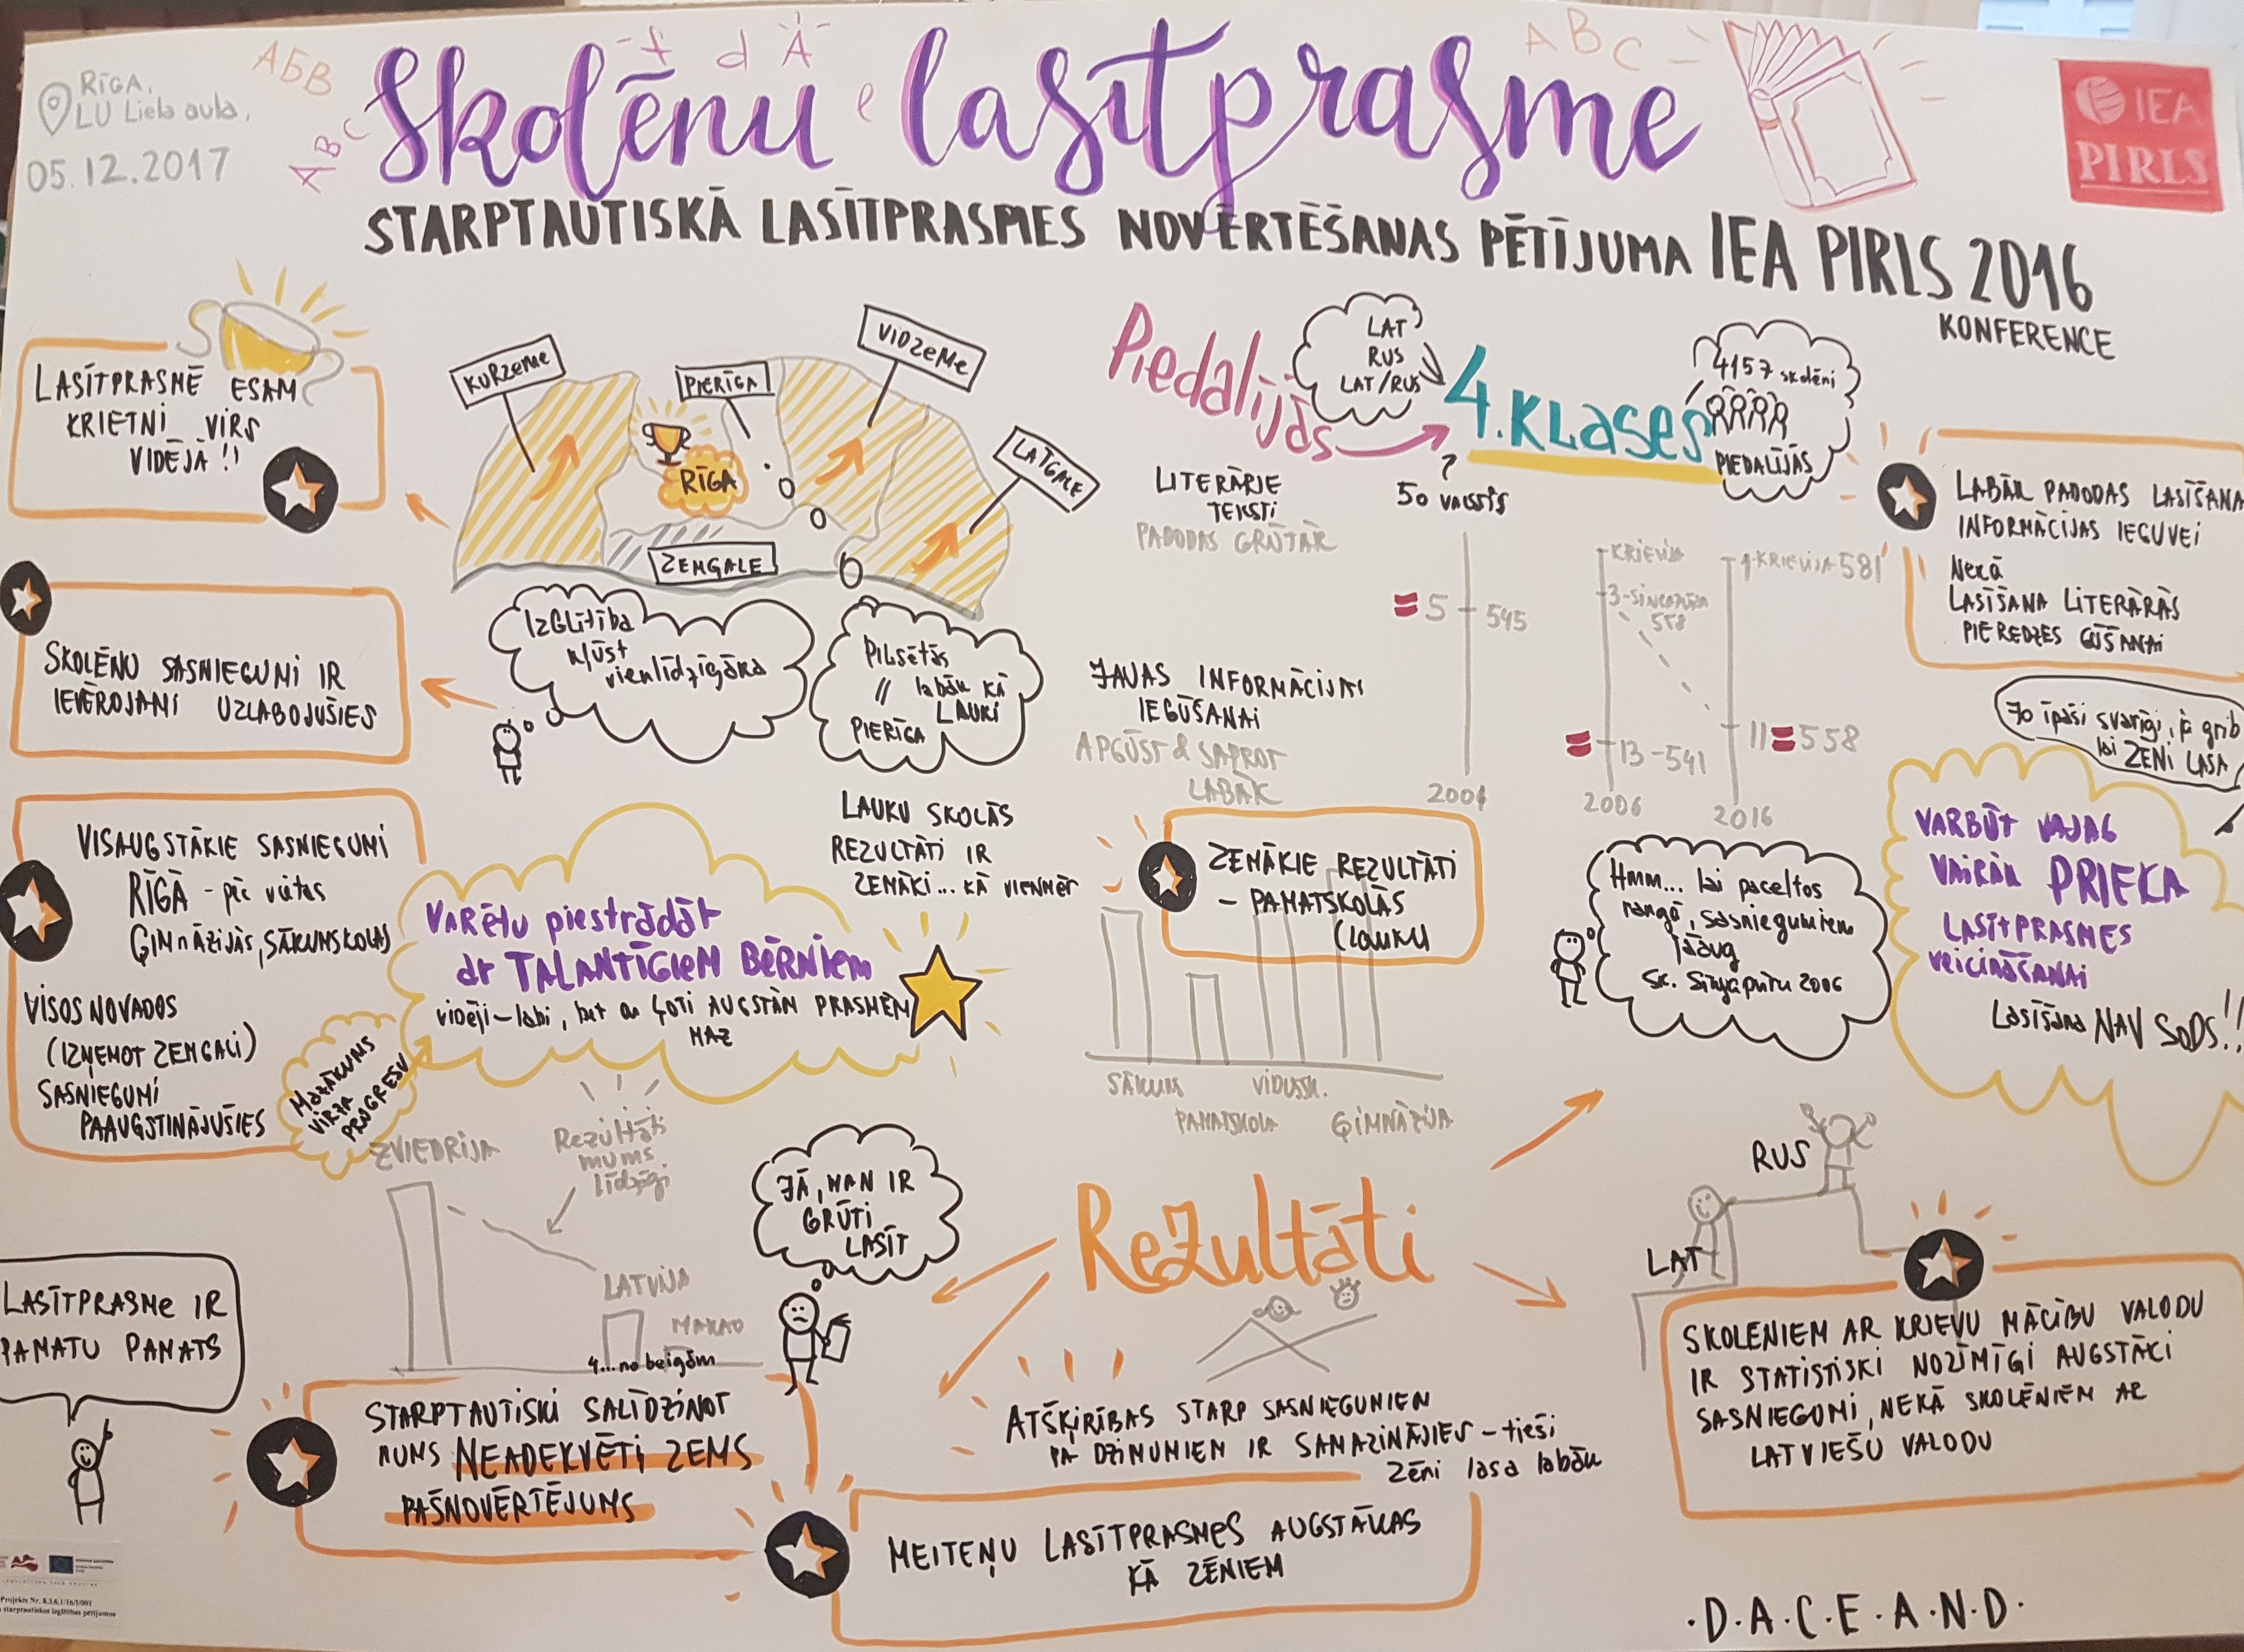 RĪGA,
LU Lielā aula,
05.12.2017
АБВ
ABC
f d Ā
e
ABC
Skolēnu lasītprasme
IEA
PIRLS
STARPTAUTISKĀ LASĪTPRASMES NOVĒRTĒŠANAS PĒTĪJUMA IEA PIRLS 2016
KONFERENCE
LASĪTPRASMĒ ESAM
KRIETNI VIRS
VIDĒJĀ!!
KURZEME
PIERĪGA
VIDZEME
LATGALE
RĪGA
ZEMGALE
Piedalījās
LAT
RUS
LAT/RUS
4.klases
4157 skolēni
PIEDALĪJĀS
50 valstīs
LITERĀRIE
TEKSTI
PADODAS GRŪTĀK
LABĀK PADODAS LASĪŠANA
INFORMĀCIJAS IEGUVEI
NEKĀ
LASĪŠANA LITERĀRĀS
PIEREDZES GŪŠANAI
SKOLĒNU SASNIEGUMI IR
IEVĒROJAMI UZLABOJUŠIES
IZGLĪTĪBA
kļūst
vienlīdzīgāka
PILSĒTĀS
// labāk KĀ
LAUKI
PIERĪGA
JAVAS INFORMĀCIJAS
IEGŪŠANAI
APGŪST & SAPROT
LABĀK
5 545
2001
KRIEVIJA
3-SINGAPŪRA
558
13-541
2006
1-KRIEVIJA 581
11 558
2016
To īpaši svarīgi, ja grib
lai ZĒNI LASA
VARBŪT VAJAG
VAIRĀK PRIEKA
LASĪTPRASMES
veicināšanai
Lasīšana NAV SODS!!
VISAUGSTĀKIE SASNIEGUMI
RĪGĀ - pēc vietas
ĢIMNĀZIJĀS, SĀKUMSKOLĀS
VISOS NOVADOS
(IZŅEMOT ZEMGALI)
SASNIEGUMI
PAAUGSTINĀJUŠIES
MAZĀKUMS
VIRZA
PROGRESU
VARĒTU piestrādāt
ar TALANTĪGIEM BĒRNIEM
vidēji-labi, bet ar ĻOTI AUGSTĀM PRASMĒM
MAZ
LAUKU SKOLĀS
REZULTĀTI IR
ZEMĀKI... KĀ VIENMĒR
ZEMĀKIE REZULTĀTI
- PAMATSKOLĀS
(LAUKU)
SĀKUMS
PAMATSKOLA
VIDUSSK.
ĢIMNĀZIJA
Hmm... lai paceltos
rangā, sasniegumiem
jāaug
sk. Singapūru 2006
ZVIEDRIJA
Rezultāts
mums
līdzīgi
LATVIJA
MAKAO
4...no beigām
JĀ, MAN IR
GRŪTI
LASĪT
Rezultāti
RUS
LAT
LASĪTPRASME IR
PAMATU PAMATS
STARPTAUTISKI SALĪDZINOT
MUMS NEADEKVĒTI ZEMS
PAŠNOVĒRTĒJUMS
ATŠĶIRĪBAS STARP SASNIEGUMIEM
PA DZIMUMIEM IR SAMAZINĀJIES - tieši
zēni lasa labāk
MEITEŅU LASĪTPRASMES AUGSTĀKAS
KĀ ZĒNIEM
SKOLENIEM AR KRIEVU MĀCĪBU VALODU
IR STATISTISKI NOZĪMĪGI AUGSTĀKI
SASNIEGUMI, NEKĀ SKOLĒNIEM AR
LATVIEŠU VALODU
Projekts Nr. 8.3.6.1/16/I/001
starptautiskos izglītības pētījumos
·D·A·C·E·A·N·D·